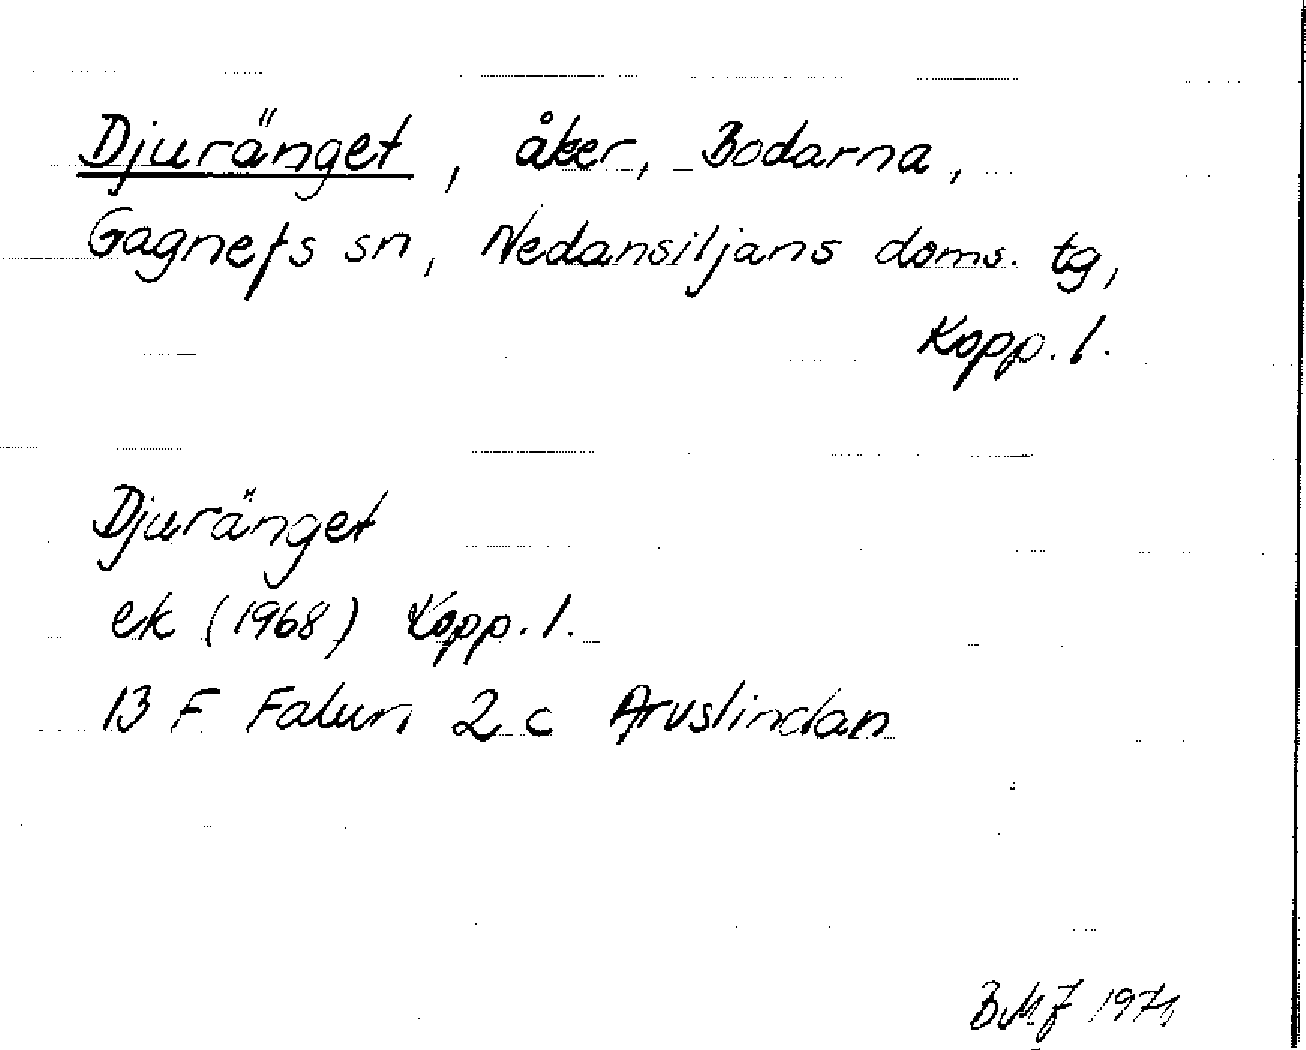 Djuränget, åker, Bodarna,
Gagnefs sn, Nedansiljans doms. tg,
Kopp. l.
Djuränget
ek (1968) Kopp. l.
13 F Falun 2 c Arvslindan
BMJ